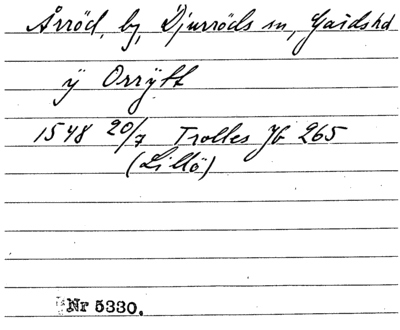 Årröd, by, Djurröds sn, Gärds hd
ÿ Orrÿtt
1548 20/7 Trolles Jb 265
(Lillö)
Nr 5330.